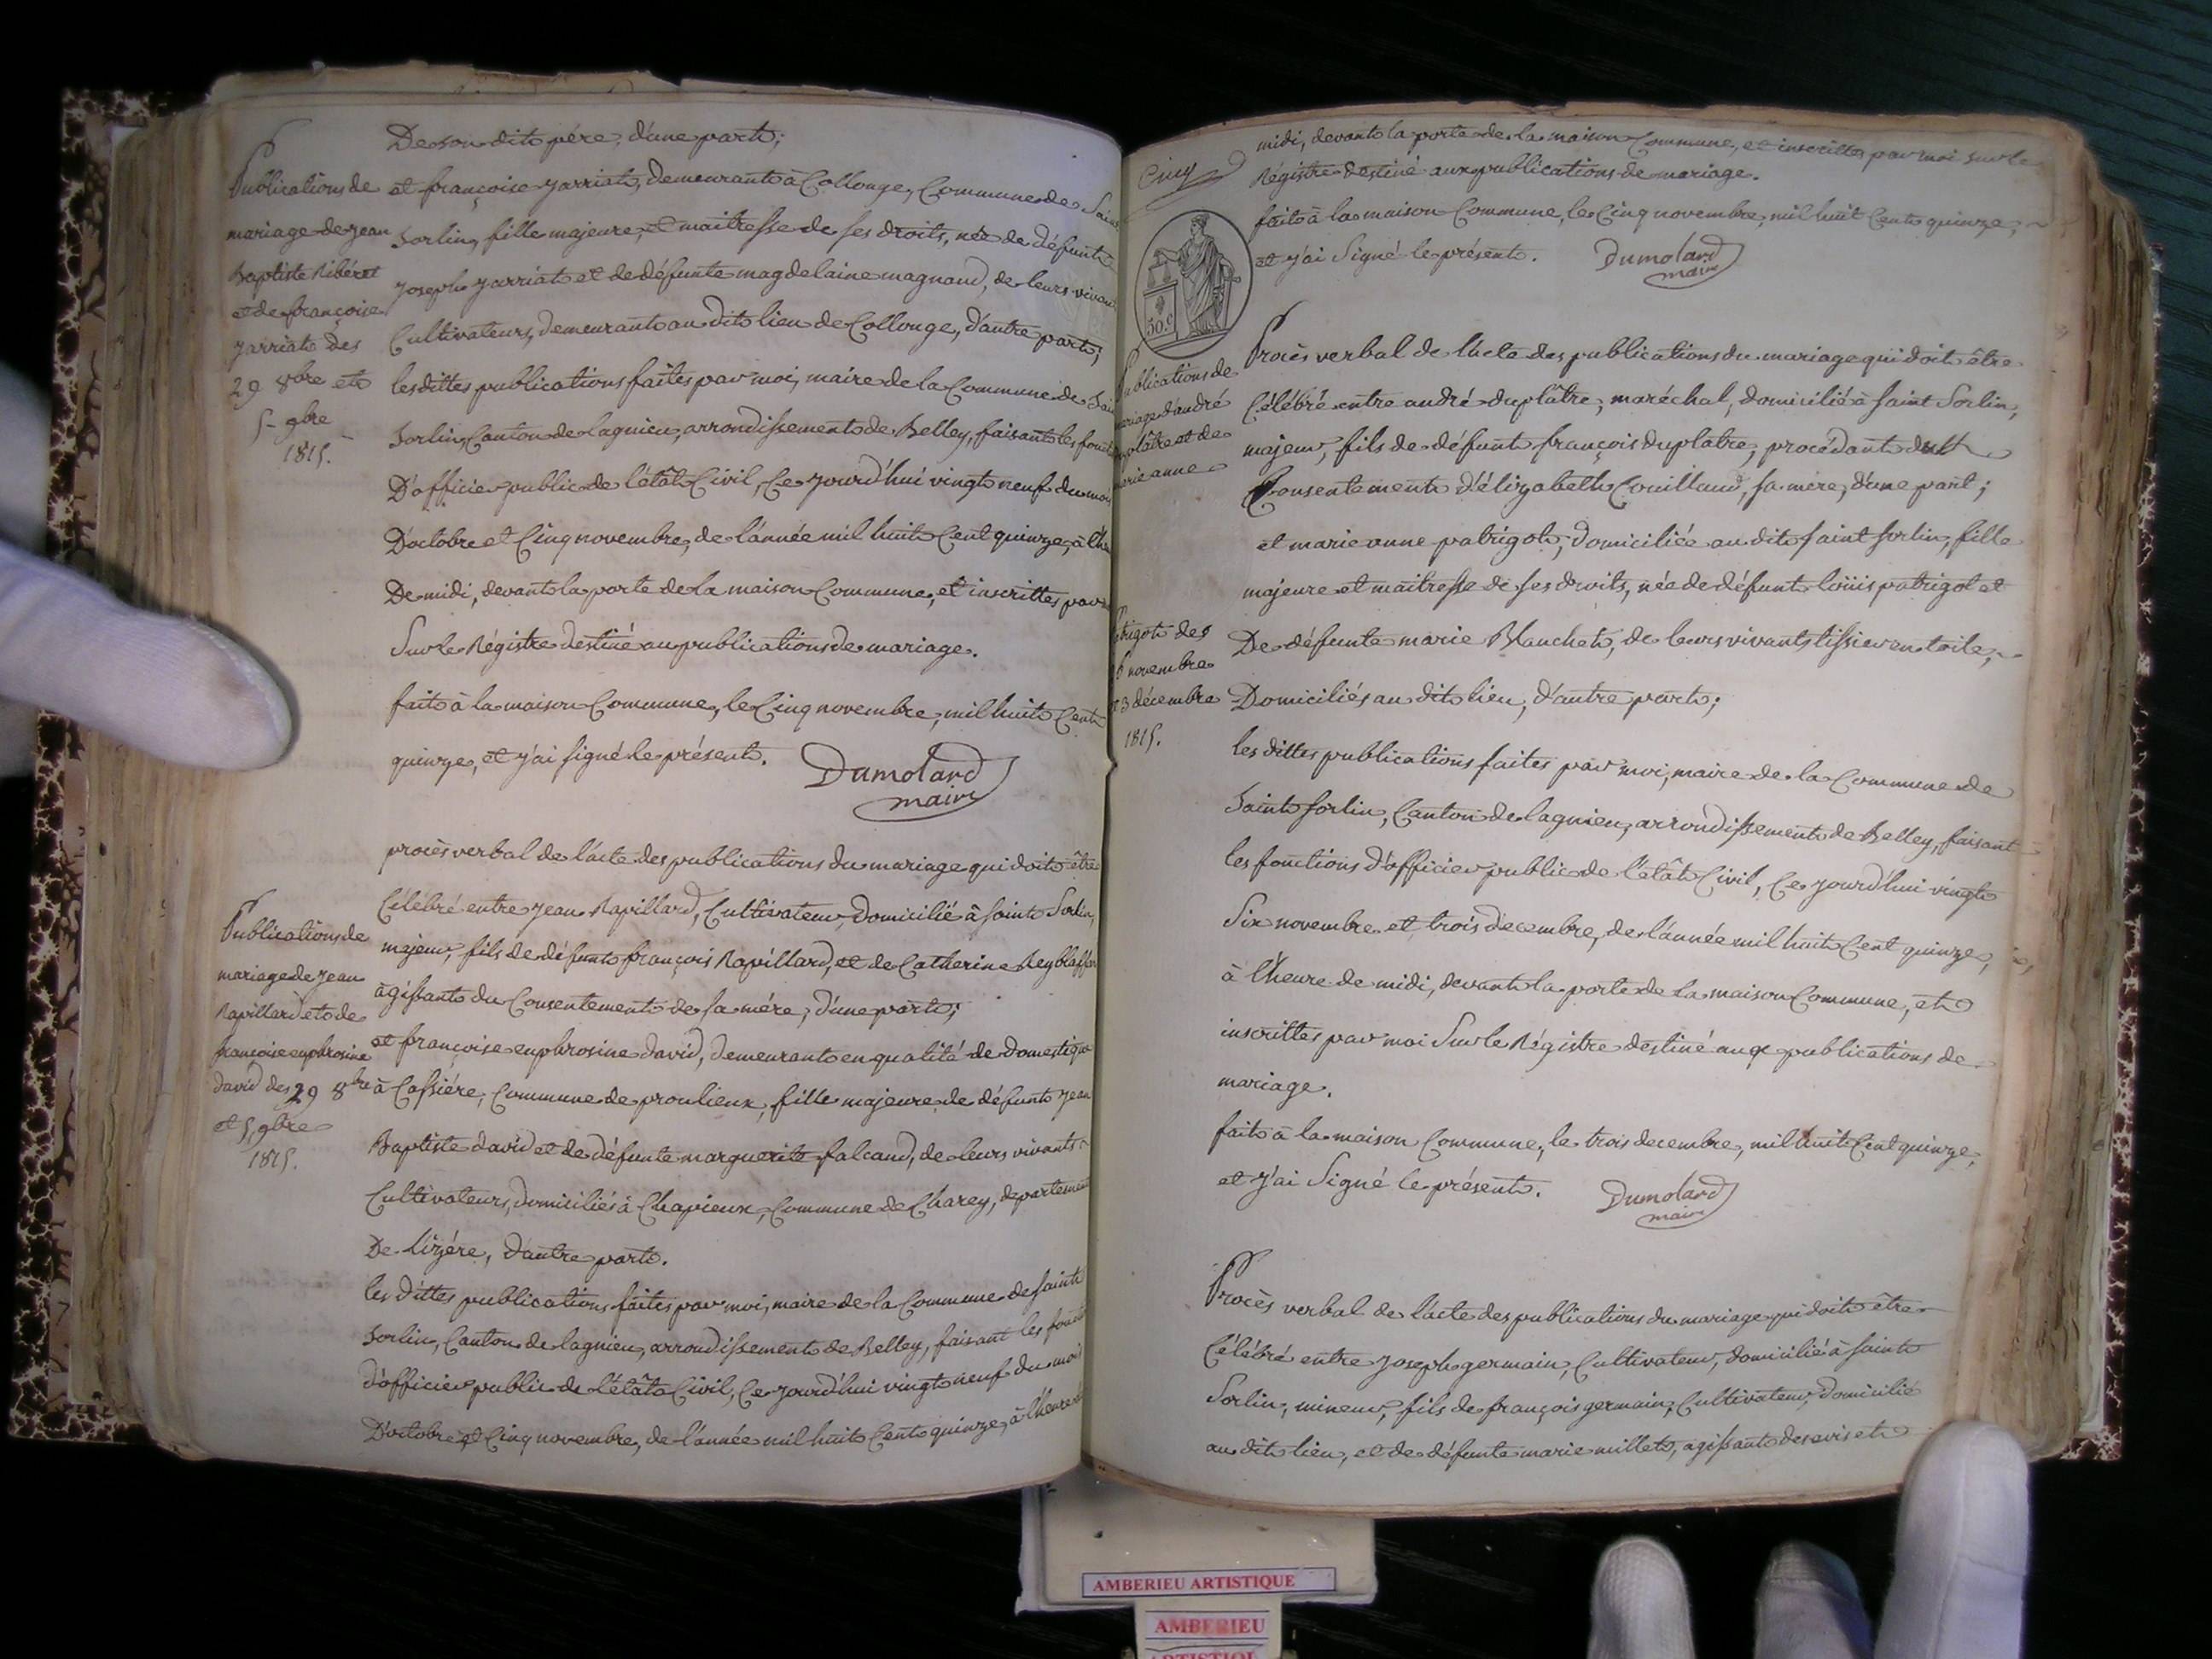 De son dit père, d'une part;
Publications de
mariage de jean
Baptiste Ribérot
et de françoise
jarriat des
29 8bre et
5 9bre
1815.
et françoise jarriat, demeurant à Collonge, Commune de Saint
Sorlin, fille majeure, et maitresse de ses droits, née de défunt
joseph jarriat et de défunte magdelaine magnand, de leurs vivants
Cultivateurs, demeurant au dit lieu de Collonge, d'autre part;
les dittes publications faites par moi, maire de la Commune de
Sorlin, Canton de lagnieu, arrondissement de Belley, faisant les
D'officier public de l'étât Civil, Ce jourd'hui vingt neuf du mois
D'octobre et Cinq novembre, de l'année mil huit Cent quinze, à
De midi, devant la porte de la maison Commune, et inscrittes par
Sur le Régistre destiné au publications de mariage.
fait à la maison Commune, le Cinq novembre, mil huit Cent
quinze, et j'ai signé le présent. Dumolard
maire
procès verbal de l'acte des publications du mariage qui doit être
Publications de
mariage de jean
Rapillard et de
françoise euphrosine
david des 29 8bre
et 5 9bre
1815.
Célébré entre jean Rapillard, Cultivateur, domicilié à saint Sorlin,
majeur, fils de défunt françois Rapillard, et de Catherine
agissant du Consentement de sa mére, d'une part;
et françoise euphrosine david, demeurant en qualité de domestique
à Cassiére, Commune de proulieux, fille majeure de défunt jean
Baptiste david et de défunte marguerite falcand, de leurs vivants
Cultivateurs, domiciliés à Chapieux, Commune de Charey, departement
De l'izére, d'autre part.
les dittes publications faites par moi, maire de la Commune de saint
Sorlin, Canton de lagnieu, arrondissement de Belley, faisant les
d'officier public de l'étât Civil, Ce jourd'hui vingt neuf du mois
D'octobre et Cinq novembre, de l'année mil huit Cent quinze, à l'heure
Cinq
midi, devant la porte de la maison Commune, et inscrittes par moi sur le
Régistre destiné aux publications de mariage.
fait à la maison Commune, le Cinq novembre, mil huit Cent quinze,
et j'ai Signé le présent. Dumolard
maire
50.c
Procès verbal de l'acte des publications du mariage qui doit être
Publications de
mariage d'andré
duplâtre et de
marie anne
patrigot des
26 novembre
et 3 décembre
1815.
Célébré entre andré duplâtre, maréchal, domicilié à saint Sorlin,
majeur, fils de défunt françois duplatre, procédant du
Consentement d'élizabeth Couilland, sa mère, d'une part;
et marie anne patrigot, domiciliée au dit saint sorlin, fille
majeure et maitresse de ses droits, née de défunt loüis patrigot et
De défunte marie Blanchet, de leurs vivants tissier en toile,
Domiciliés au dit lieu, d'autre part;
les dittes publications faites par moi, maire de la Commune de
Saint sorlin, Canton de lagnieu, arrondissement de Belley, faisant
les fonctions d'officier public de l'étât Civil, Ce jourd'hui vingt
Six novembre et trois décembre, de l'année mil huit Cent quinze,
à l'heure de midi, devant la porte de la maison Commune, et
inscrittes par moi Sur le Régistre destiné aux publications de
mariage.
fait à la maison Commune, le trois decembre, mil huit Cent quinze,
et j'ai Signé le présent. Dumolard
maire
Procès verbal de l'acte des publications du mariage qui doit être
Célébré entre joseph germain, Cultivateur, domicilié à saint
Sorlin, mineur, fils de françois germain, Cultivateur, domicilié
au dit lieu, et de défunte marie millet, agissant des avis et
AMBERIEU ARTISTIQUE
AMBERIEU
ARTISTIQUE